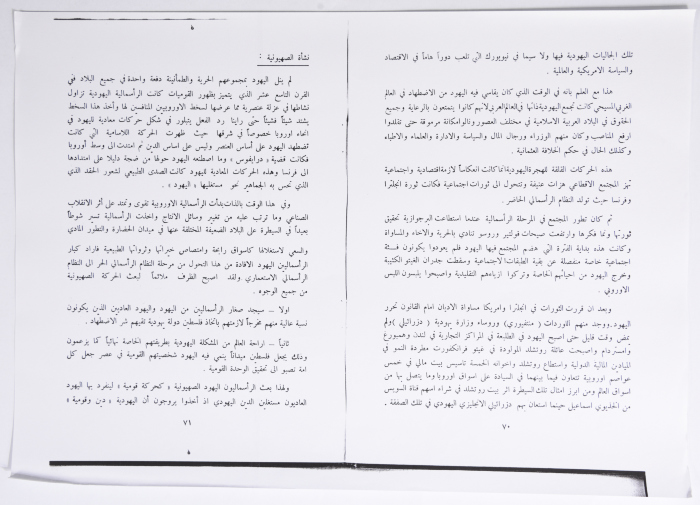 تلك الجاليات اليهودية فيها ولا سيما في نيويورك التي تلعب دوراً هاماً في الاقتصاد
والسياسة الامريكية والعالمية .
هذا مع العلم بانه في الوقت الذي كان يقاسي فيه اليهود من الاضطهاد في العالم
الغربي المسيحي كانت تجمع اليهودية ذاتها في العالم العربي لانهم كانوا يتمتعون بالرعاية وجميع
الحقوق في البلاد العربية الاسلامية في مختلف العصور ونالوا مكانة مرموقة حتى تقلدوا
ارفع المناصب وكان منهم الوزراء ورجال المال والسياسة والادارة والعلماء والاطباء
وكذلك الحال في حكم الخلافة العثمانية .
هذه الحركات القلقة للهجرة اليهودية انما كانت انعكاساً لازمة اقتصادية واجتماعية
تهز المجتمع الاقطاعي هزات عنيفة وتتحول الى ثورات اجتماعية فكانت ثورة انجلترا
وفرنسا حيث تولد النظام الرأسمالي الحاضر .
ثم كان تطور المجتمع في المرحلة الرأسمالية عندما استطاعت البرجوازية تحقيق
ثورتها ونما فكرها وارتفعت صيحات فولتير وروسو تنادي بالحرية والاخاء والمساواة
وكانت هذه بداية الفترة التي هضم المجتمع فيها اليهود فلم يعودوا يكونون فئة
اجتماعية خاصة منفصلة عن بقية الطبقات الاجتماعية وسقطت جدران الغيتو الكئيبة
وخرج اليهود من احيائهم الخاصة وتركوا ازياءهم التقليدية واصبحوا يلبسون اللبس
الاوروبي .
وبعد ان قررت الثورات في انجلترا وامريكا مساواة الاديان امام القانون تحرر
اليهود ووجد منهم اللوردات ( منتفيوري ) وروساء وزارة يهودية ( دزرائيلي ) ولم
يمض وقت قليل حتى اصبح اليهود في الطليعة في المراكز التجارية في لندن وهمبورغ
وامستردام واصبحت عائلة روتشلد المولودة في غيتو فرانكفورت مطردة النمو في
الميادين المالية الدولية واستطاع روتشلد واخوانه الخمسة تأسيس بيت مالي في خمس
عواصم اوروبية تتعاون فيما بينهما في السيادة على اسواق اوروبا وما يتصل بها من
اسواق العالم ومن ابرز امثال تلك السيطرة اثر بيت روتشلد في شراء اسهم قناة السويس
من الخديوي اسماعيل حينما استعان بهم دزرائيلي الانجليزي اليهودي في تلك الصفقة .
٧٠
نشأة الصهيونية :
لم ينل اليهود بمجموعهم الحرية والطمأنينة دفعة واحدة في جميع البلاد ففي
القرن التاسع عشر الذي يتميز بظهور القوميات كانت الرأسمالية اليهودية تزاول
نشاطها في عزلة عنصرية مما عرضها لسخط الاوروبيين المنافسين لها وأخذ هذا السخط
يشتد شيئاً فشيئاً حتى راينا رد الفعل يتبلور في شكل حركات معادية لليهود في
انحاء اوروبا خصوصاً في شرقها حيث ظهرت الحركة اللاسامية التي كانت
تضطهد اليهود على أساس العنصر وليس على اساس الدين ثم امتدت الى وسط أوروبا
فكانت قضية « درايفوس » وما اصطنعه اليهود حولها من ضجة دليلا على امتدادها
الى فرنسا وهذه الحركات المعادية لليهود كانت الصدى الطبيعي لشعور الحقد الذي
تحس به الجماهير نحو مستغليها « اليهود » .
وفي هذا الوقت بالذات بدأت الرأسمالية الاوروبية تقوى وتمتد على أثر الانقلاب
الصناعي وما ترتب عليه من تغيير وسائل الانتاج واخذت الرأسمالية تسير شوطاً
بعيداً في السيطرة على البلاد الضعيفة المختلفة عنها في ميدان الحضارة والتطور المادي
والسعي لاستغلالها كاسواق رابحة وامتصاص خيراتها وثرواتها الطبيعية فاراد كبار
الرأسماليين اليهود الافادة من هذا التحول من مرحلة النظام الرأسمالي الحر الى النظام
الرأسمالي الاستعماري ولقد اصبح الظرف ملائماً لبعث الحركة الصهيونية
من جميع الوجوه .
اولا – سيجد صغار الرأسماليين من اليهود واليهود العاديين الذين يكونون
نسبة عالية منهم مخرجاً لازمتهم باتخاذ فلسطين دولة يهودية تقيهم شر الاضطهاد .
ثانياً – اراحة العالم من المشكلة اليهودية بطريقتهم الخاصة نهائياً كما يزعمون
وذلك بجعل فلسطين ميداناً ينمي فيه اليهود شخصيتهم القومية في عصر جعل كل
امة تصبو الى تحقيق الوحدة القومية .
ولهذا بعث الرأسماليون اليهود الصهيونية « كحركة قومية » لينفرد بها اليهود
العاديون مستغلين الدين اليهودي اذ أخذوا يروجون أن اليهودية « دين وقومية »
٧١